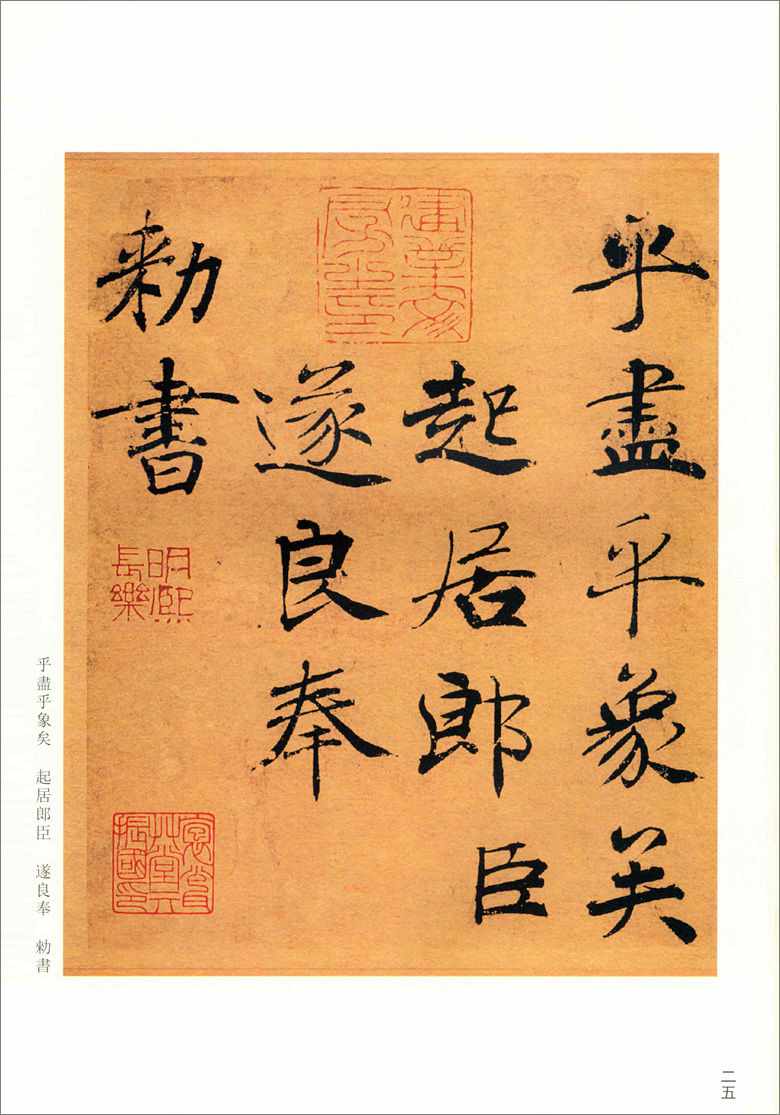 乎盡乎象矣
起居郎臣
遂良奉
勅書
明熙
長樂
乎盡乎象矣　起居郎臣　遂良奉　勅書
二五